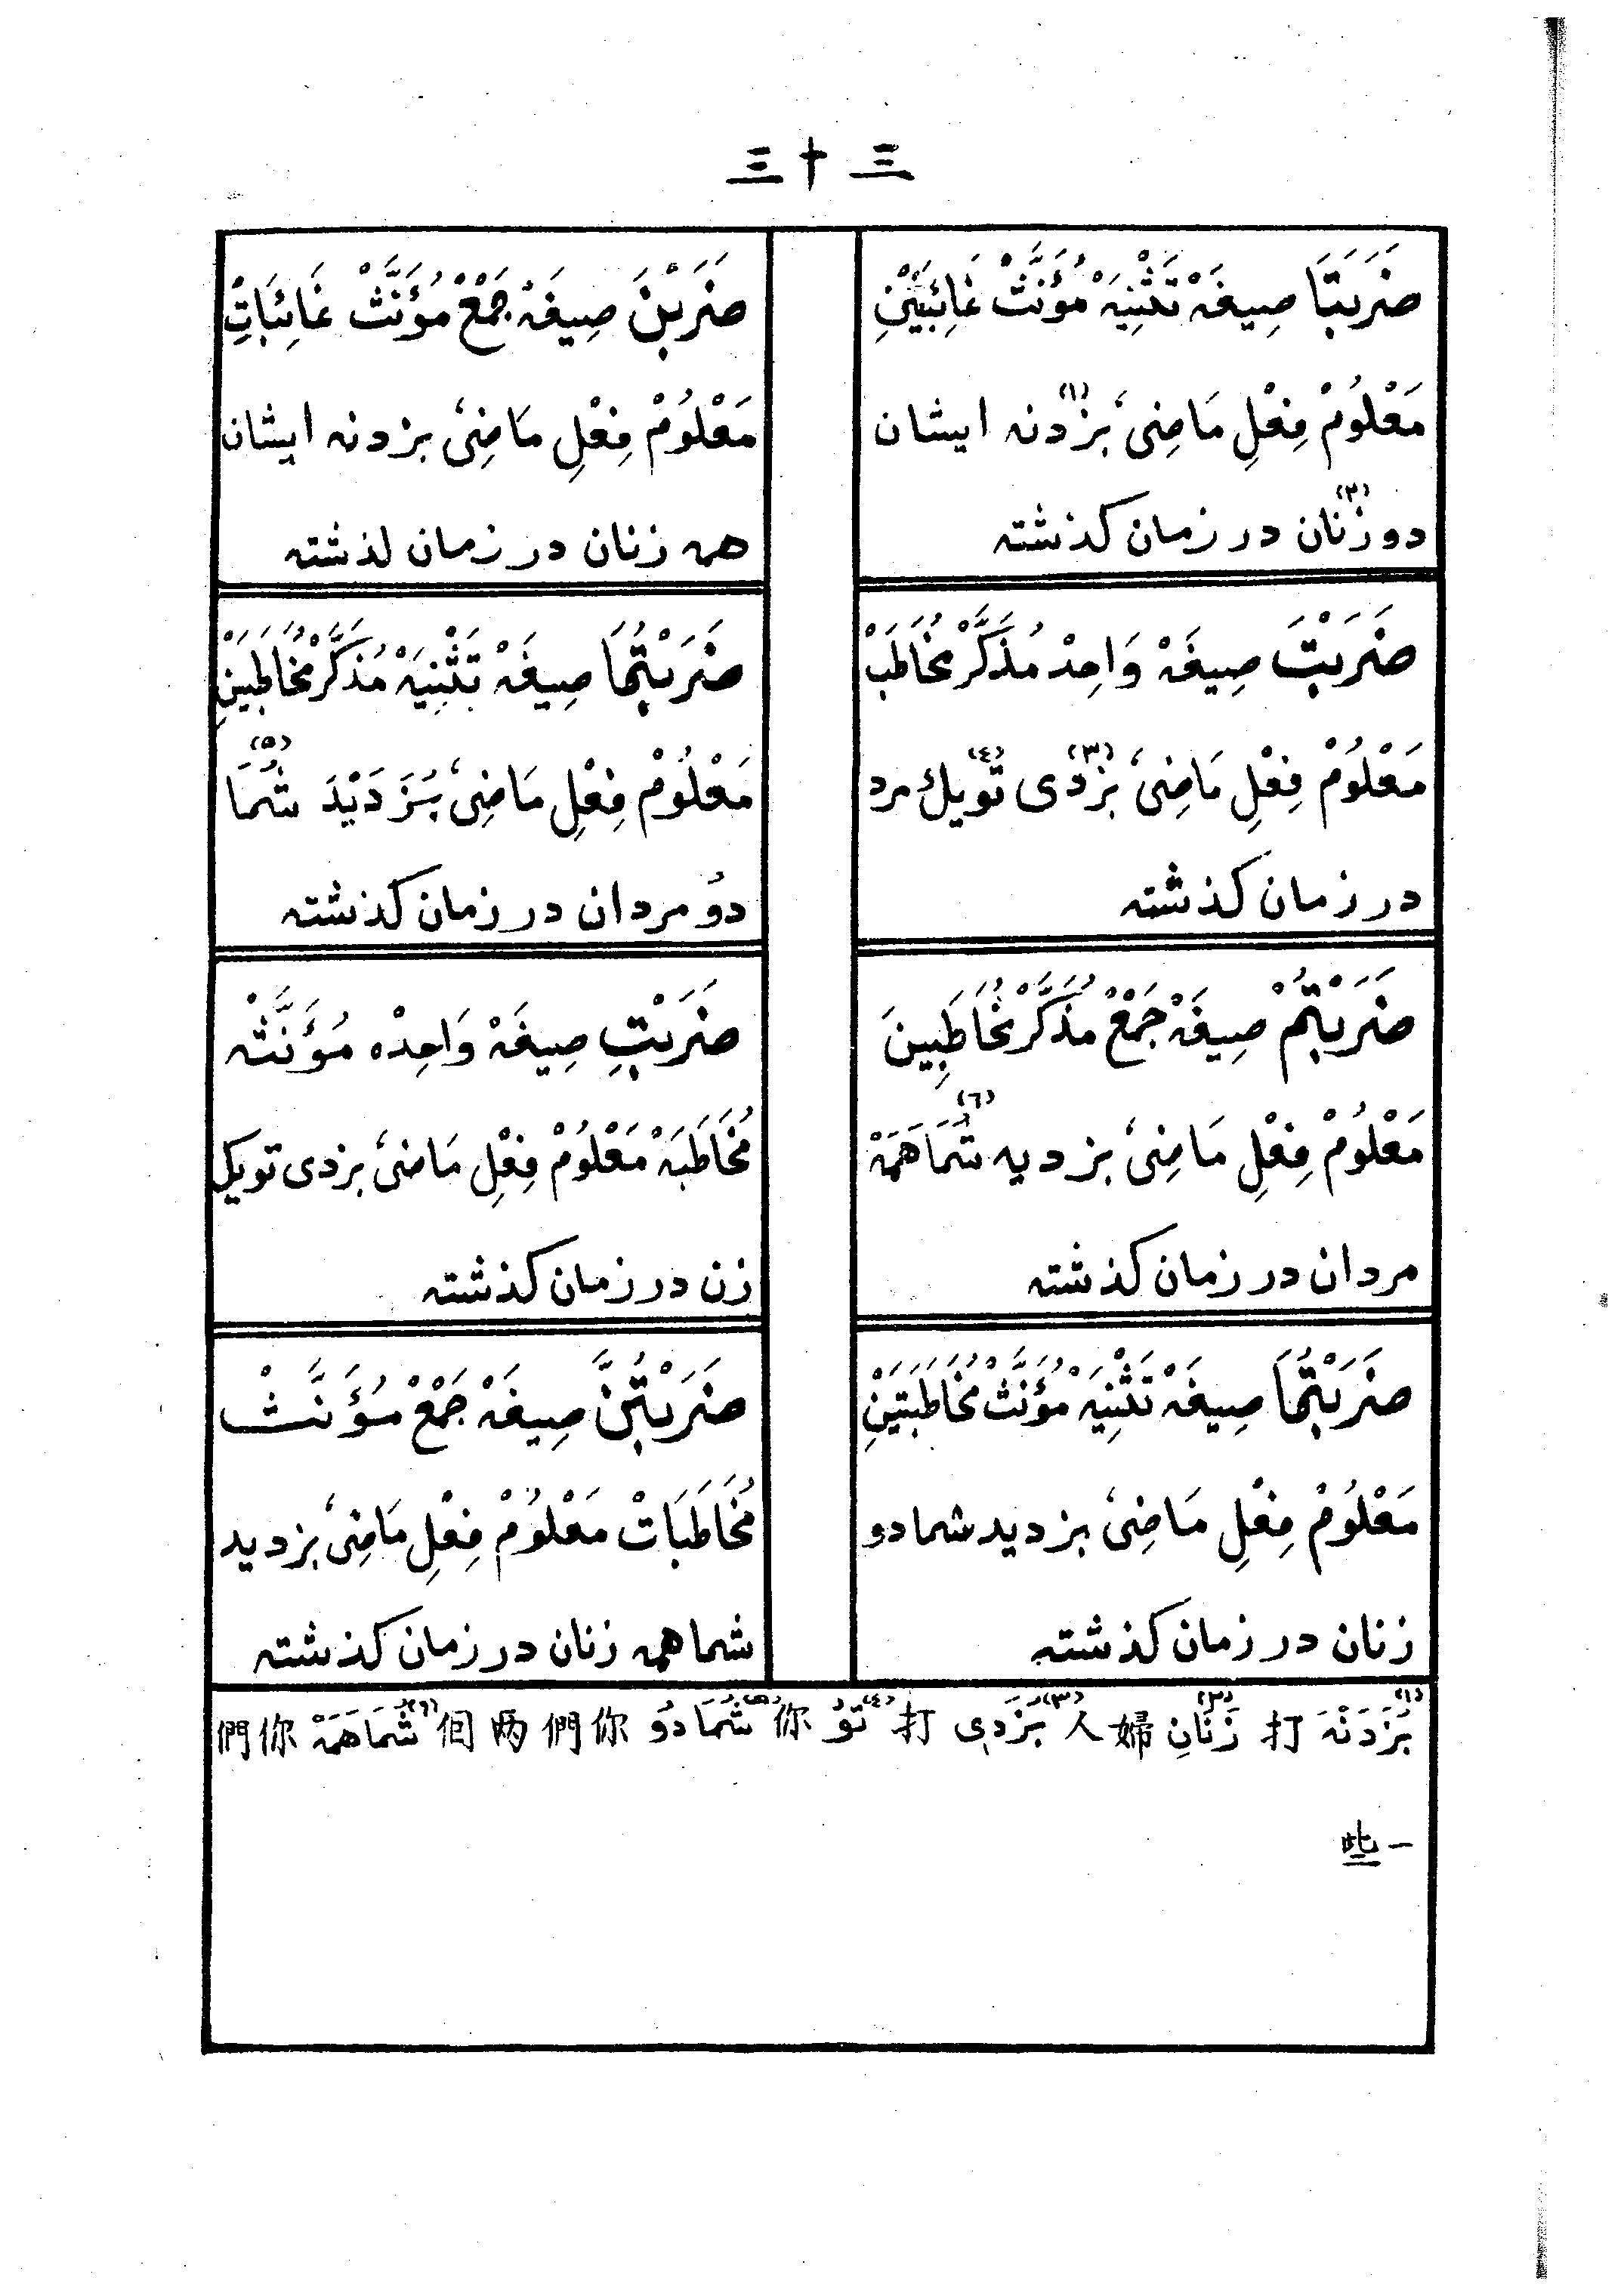 三十三
ضَرَبَتَا صِيغَهْ تَثْنِيَهْ مُؤَنَّثْ غَائِبَتَيْنِ
مَعْلُومْ فِعْلِ مَاضِىْ بزدنه (١) ايشان
دو زنان (٢) در زمان كذشته
ضَرَبْنَ صِيغَهْ جَمْعْ مُؤَنَّثْ غَائِبَاتِ
مَعْلُومْ فِعْلِ مَاضِىْ بزدنه ايشان
همه زنان در زمان لذشته
ضَرَبْتَ صِيغَهْ وَاحِدْ مُذَكَّرْ مُخَاطَبْ
مَعْلُومْ فِعْلِ مَاضِىْ بزدى (٣) تو (٤) يك مرد
در زمان كذشته
ضَرَبْتُمَا صِيغَهْ تَثْنِيَهْ مُذَكَّرْ مُخَاطَبَيْنِ
مَعْلُومْ فِعْلِ مَاضِىْ بَزَدَيْدَ شُمَا (٥)
دوُ مردان در زمان كذشته
ضَرَبْتُمْ صِيغَهْ جَمْعْ مُذَكَّرْ مُخَاطَبِينَ
مَعْلُومْ فِعْلِ مَاضِىْ بزديه شُمَا هَمَهْ (٦)
مردان در زمان كذشته
ضَرَبْتِ صِيغَهْ وَاحِدْه مُؤَنَّثْه
مُخَاطَبَهْ مَعْلُومْ فِعْلِ مَاضِىْ بزدى تويك
زن در زمان كذشته
ضَرَبْتُمَا صِيغَهْ تَثْنِيَهْ مُؤَنَّثْ مُخَاطَبَتَيْنِ
مَعْلُومْ فِعْلِ مَاضِىْ بزديد شما دو
زنان در زمان كذشته
ضَرَبْتُنَّ صِيغَهْ جَمْعْ مُؤَنَّثْ
مُخَاطَبَاتْ مَعْلُومْ فِعْلِ مَاضِىْ بزديد
شما همه زنان در زمان كذشته
(١) بَزَدَنْهَ 打 (٢) زَنَانِ 婦人 (٣) بَزَدِى 打 (٤) تُوْ 你 (٥) شُمَا دُو 你們两個 (٦) شُمَا هَمَهْ 你們
一些